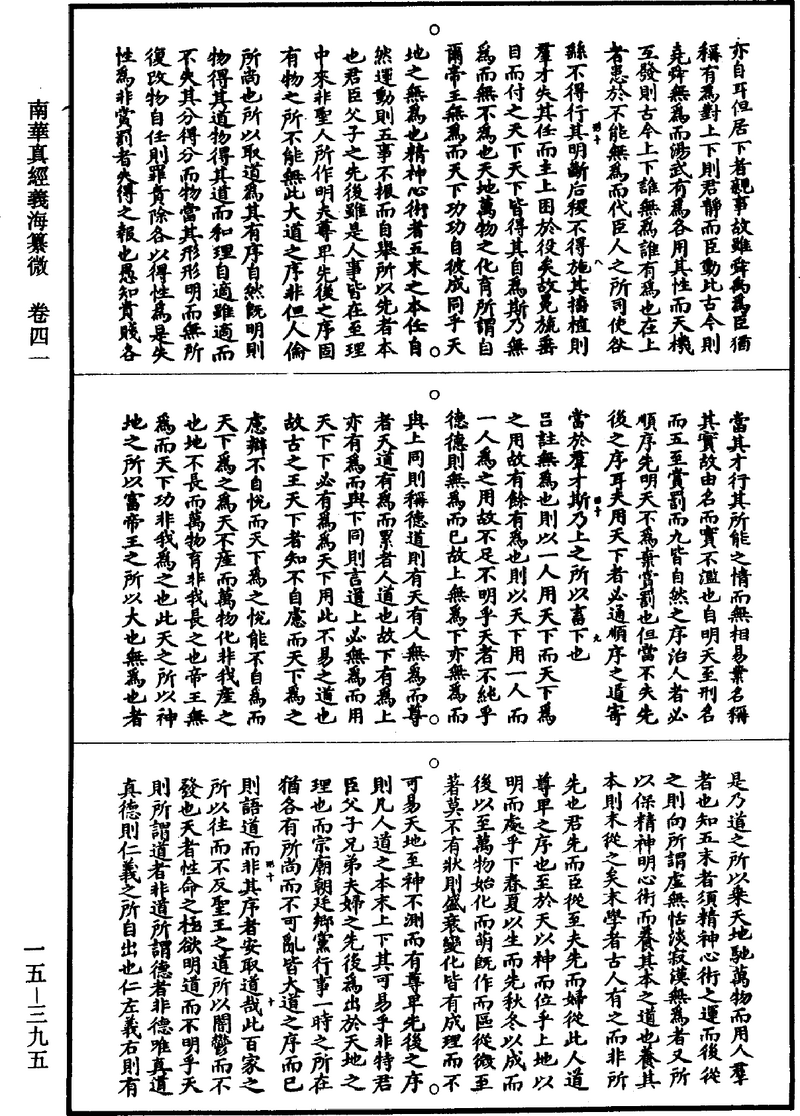 亦自耳但居下者親事故雖舜禹為臣猶
稱有為對上下則君靜而臣動比古今則
堯舜無為而湯武有為各用其性而天機
互發則古今上下誰無為誰有為也在上
者患於不能無為而代臣人之所司使咎
繇不得行其明斷后稷不得施其播植則
羣才失其任而主上困於役矣故冕旒垂
目而付之天下天下皆得其自為斯乃無
為而無不為也天地萬物之化育所謂自
爾帝王無為而天下功功自彼成同乎天
地之無為也精神心術者五末之本任自
然運動則五事不振而自舉所以先者本
也君臣父子之先後雖是人事皆在至理
中來非聖人所作明夫尊卑先後之序固
有物之所不能無此大道之序非但人倫
所尚也所以取道為其有序自然既明則
物得其道物得其道而和理自適雖適而
不失其分得分而物當其形形明而無所
復改物自任則罪責除各以得性為是失
性為非賞罰者失得之報也愚知貴賤各
當其才行其所能之情而無相易業名稱
其實故由名而實不濫也自明天至刑名
而五至賞罰而九皆自然之序治人者必
順序先明天不為棄賞罰也但當不失先
後之序耳夫用天下者必通順序之道寄
當於羣才斯乃上之所以畜下也
呂註無為也則以一人用天下而天下為
之用故有餘有為也則以天下用一人而
一人為之用故不足不明乎天者不純乎
德德則無為而已故上無為下亦無為而
與上同則稱德道則有天有人無為而尊
者天道有為而累者人道也故下有為上
亦有為而與下同則言道上必無為而用
天下下必有為為天下用此不易之道也
故古之王天下者知不自慮而天下為之
慮辯不自悅而天下為之悅能不自為而
天下為之為天不產而萬物化非我產之
也地不長而萬物育非我長之也帝王無
為而天下功非我為之也此天之所以神
地之所以富帝王之所以大也無為也者
是乃道之所以乘天地馳萬物而用人羣
者也知五末者須精神心術之運而後從
之則向所謂虛無恬淡寂漠無為者又所
以保精神明心術而養其本之道也養其
本則末從之矣末學者古人有之而非所
先也君先而臣從至夫先而婦從此人道
尊卑之序也至於天以神而位乎上地以
明而處乎下春夏以生而先秋冬以成而
後以至萬物始化而萌既作而區從微至
著莫不有狀則盛衰變化皆有成理而不
可易天地至神不測而有尊卑先後之序
則凡人道之本末上下其可易乎非特君
臣父子兄弟夫婦之先後為出於天地之
理也而宗廟朝廷鄉黨行事一時之所在
猶各有所尚而不可亂皆大道之序而已
則語道而非其序者安取道哉此百家之
所以往而不反聖王之道所以闇鬱而不
發也天者性命之極欲明道而不明乎天
則所謂道者非道所謂德者非德唯真道
真德則仁義之所自出也仁左義右則有
南華真經義海纂微 卷四一
一五—三九五